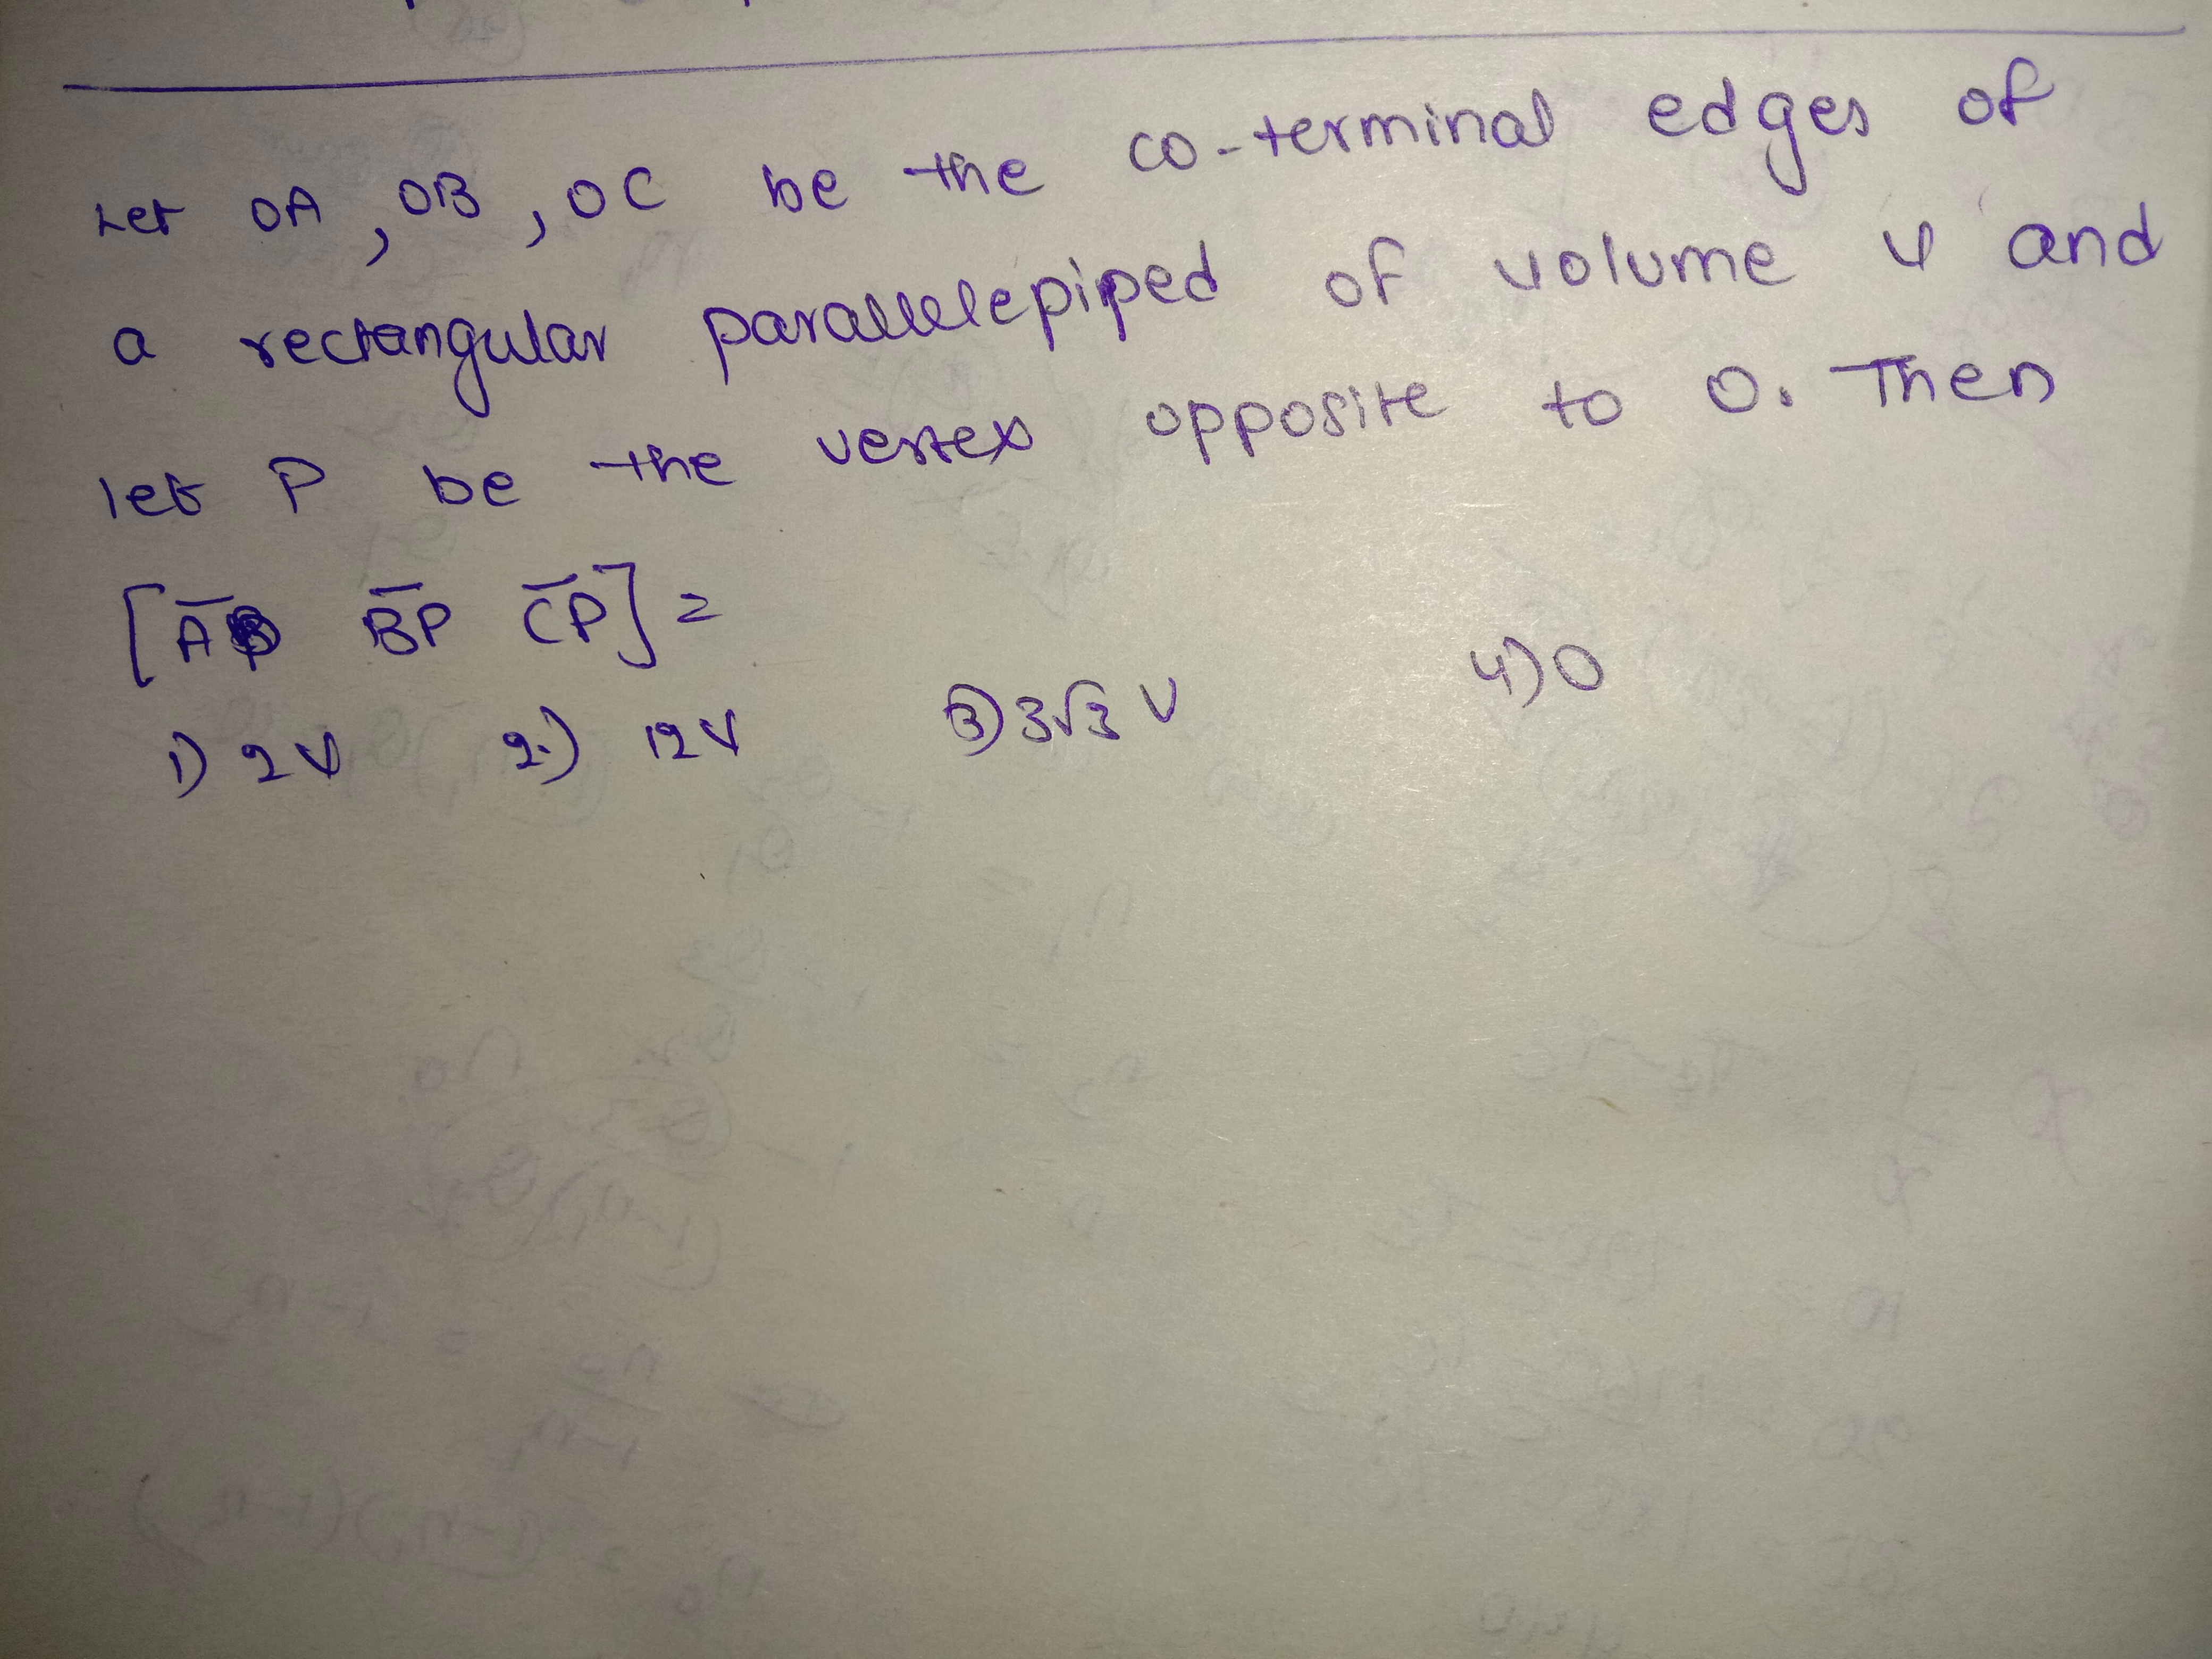 Let OA, OB, OC be the co-terminal edges of
a rectangular parallelepiped of volume V and
let P be the vertex opposite to O. Then
[A̅P B̅P C̅P] =
1) 2V 2.) 12V 3) 3√3 V 4) 0